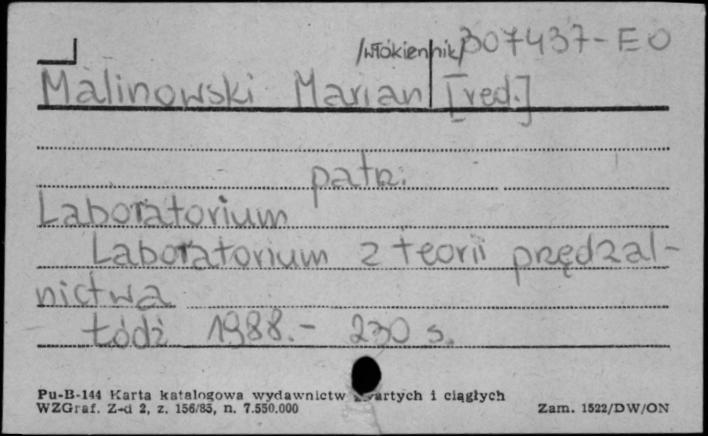 /włókiennik/ 307437-EO
Malinowski Marian [red.]
patrz:
Laboratorium
Laboratorium z teorii przędzal-
nictwa
Łódź 1988.- 230 s.
Pu-B-144 Karta katalogowa wydawnictw zwartych i ciągłych
WZGraf. Z-d 2, z. 156/85, n. 7.550.000 Zam. 1522/DW/ON